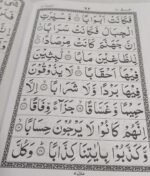 فَكَانَتْ اَبْوَابًا ۝ وَّسُيِّرَتِ
الْجِبَالُ فَكَانَتْ سَرَابًا ۝
اِنَّ جَهَنَّمَ كَانَتْ مِرْصَادًا ۝
لِّلطَّاغِيْنَ مَاٰبًا ۝ لّٰبِثِيْنَ
فِيْهَآ اَحْقَابًا ۝ لَا يَذُوْقُوْنَ
فِيْهَا بَرْدًا وَّلَا شَرَابًا ۝ اِلَّا
حَمِيْمًا وَّغَسَّاقًا ۝ جَزَآءً وِّفَاقًا ۝
اِنَّهُمْ كَانُوْا لَا يَرْجُوْنَ حِسَابًا ۝
وَّكَذَّبُوْا بِاٰيٰتِنَا كِذَّابًا ۝ وَكُلَّ